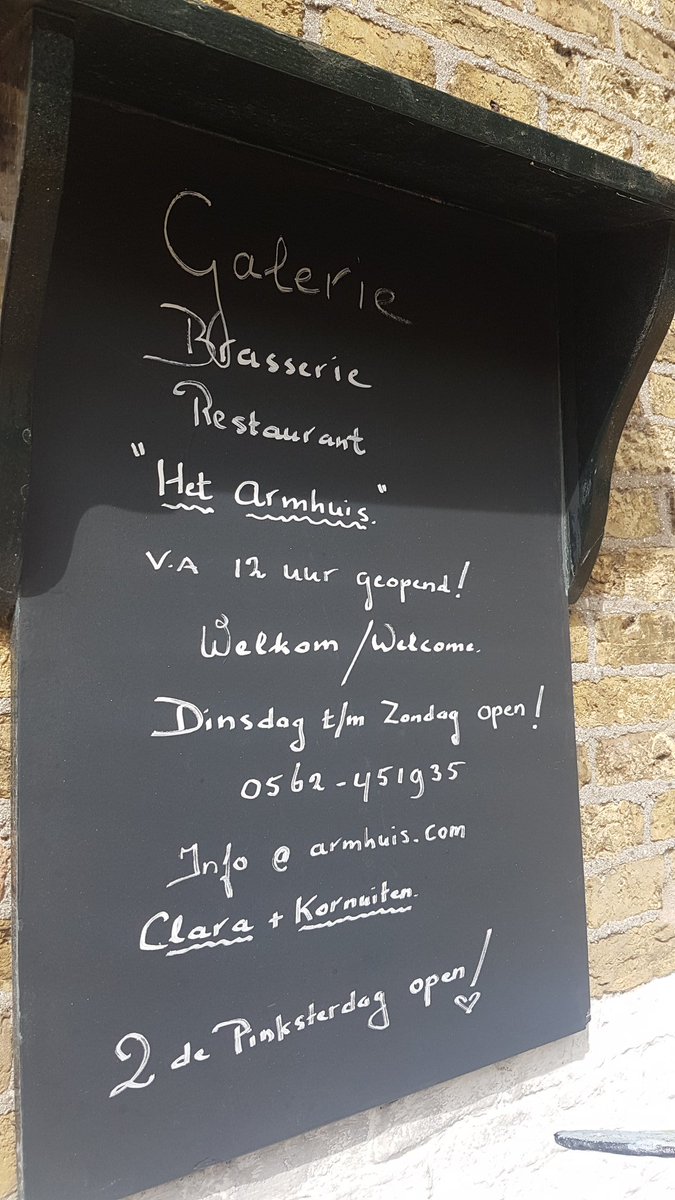 Galerie
Brasserie
Restaurant
"Het Armhuis."
V.A 12 uur geopend!
Welkom/Welcome.
Dinsdag t/m Zondag open!
0562-451935
Info @ armhuis.com
Clara + Kornuiten.
2 de Pinksterdag open!